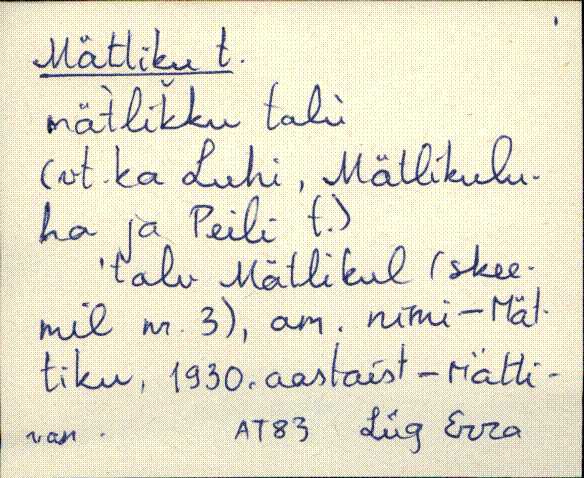 Mätliku t.
mätlikku talu
(vt. ka Luhi, Mätlikulu-
ha ja Peili t.)
talu Mätlikul (skee-
mil nr. 3), am. nimi – Mät-
tiku, 1930. aastaist – Mätli-
van. AT83 Lüg Erra